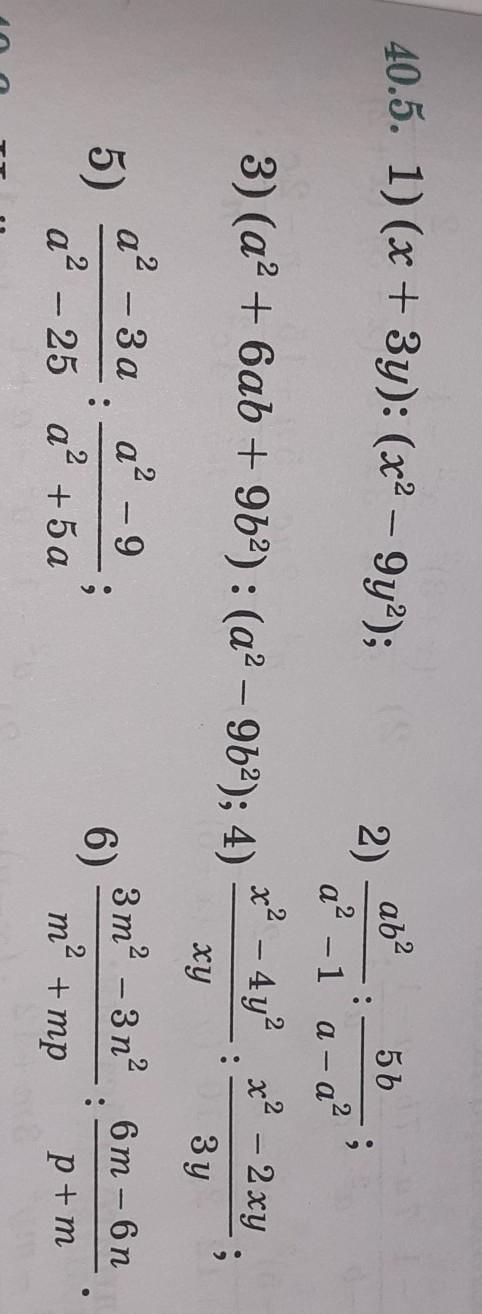 40.5. 1) (x + 3y) : (x² − 9y²); 2) \frac{ab²}{a² − 1} : \frac{5b}{a − a²};
3) (a² + 6ab + 9b²) : (a² − 9b²); 4) \frac{x² − 4y²}{xy} : \frac{x² − 2xy}{3y};
5) \frac{a² − 3a}{a² − 25} : \frac{a² − 9}{a² + 5a}; 6) \frac{3m² − 3n²}{m² + mp} : \frac{6m − 6n}{p + m}.